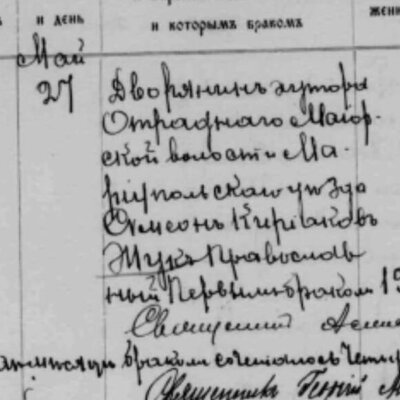 и день
и которымъ бракомъ
жени
Май
27
Дворянинъ хутора
Отраднаго Маіор-
ской волости Ма-
ріупольскаго уѣзда
Симеонъ Киріаковъ
Жукъ Православ
ный Первымъ бракомъ 19
Священникъ
бракомъ сочеталось четы
Священникъ Георгій